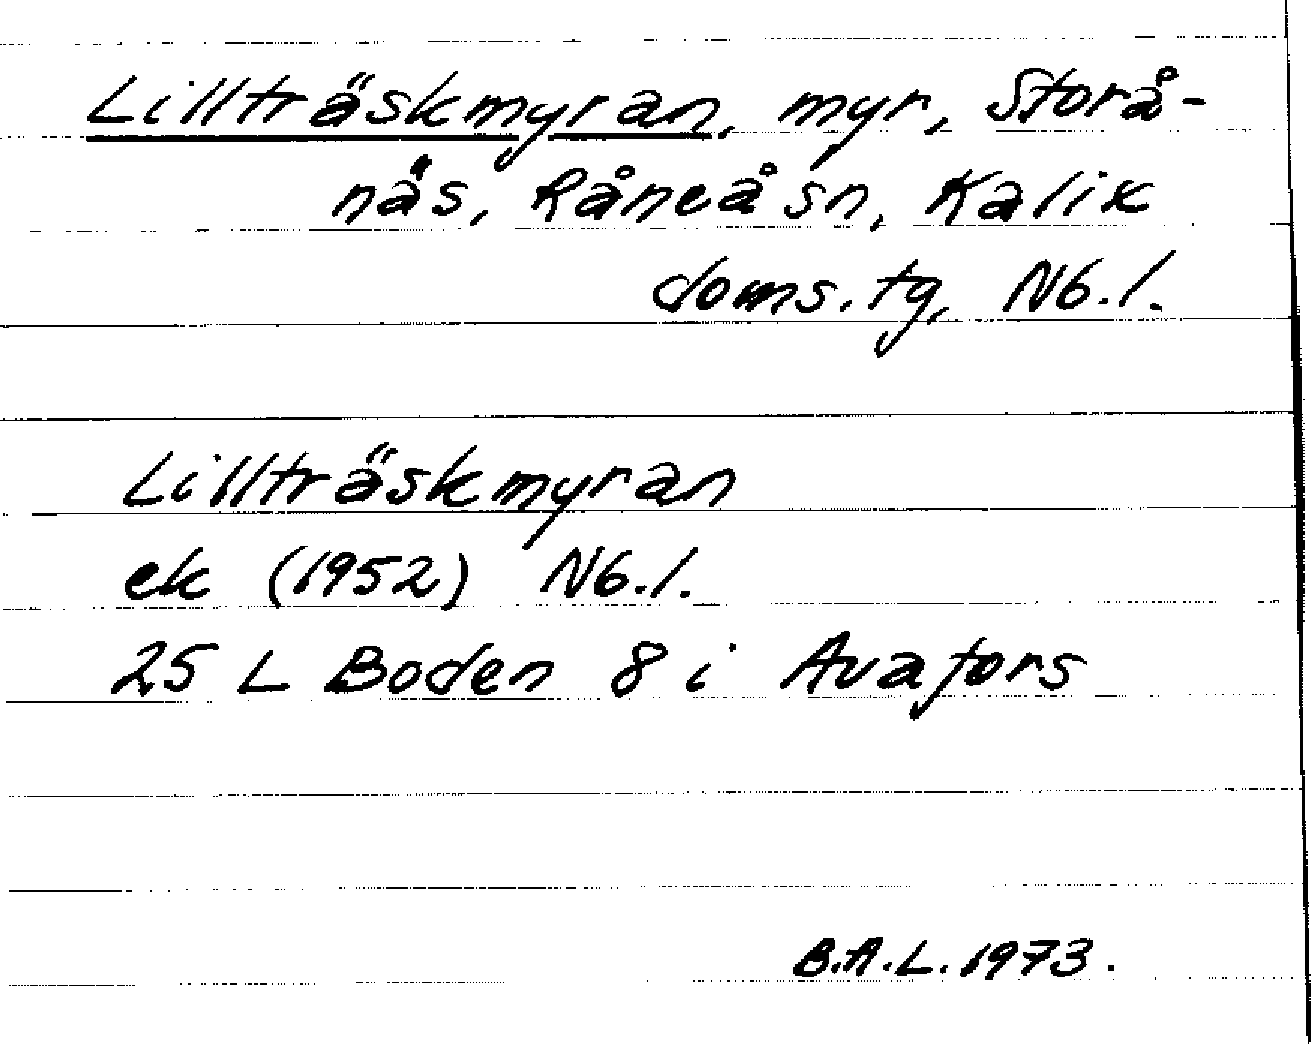 Lillträskmyran, myr, Storå-
näs, Råneå sn, Kalix
doms. tg, Nb. l.
Lillträskmyran
ek (1952) Nb. l.
25 L Boden 8 i Avafors
B.A.L. 1973.